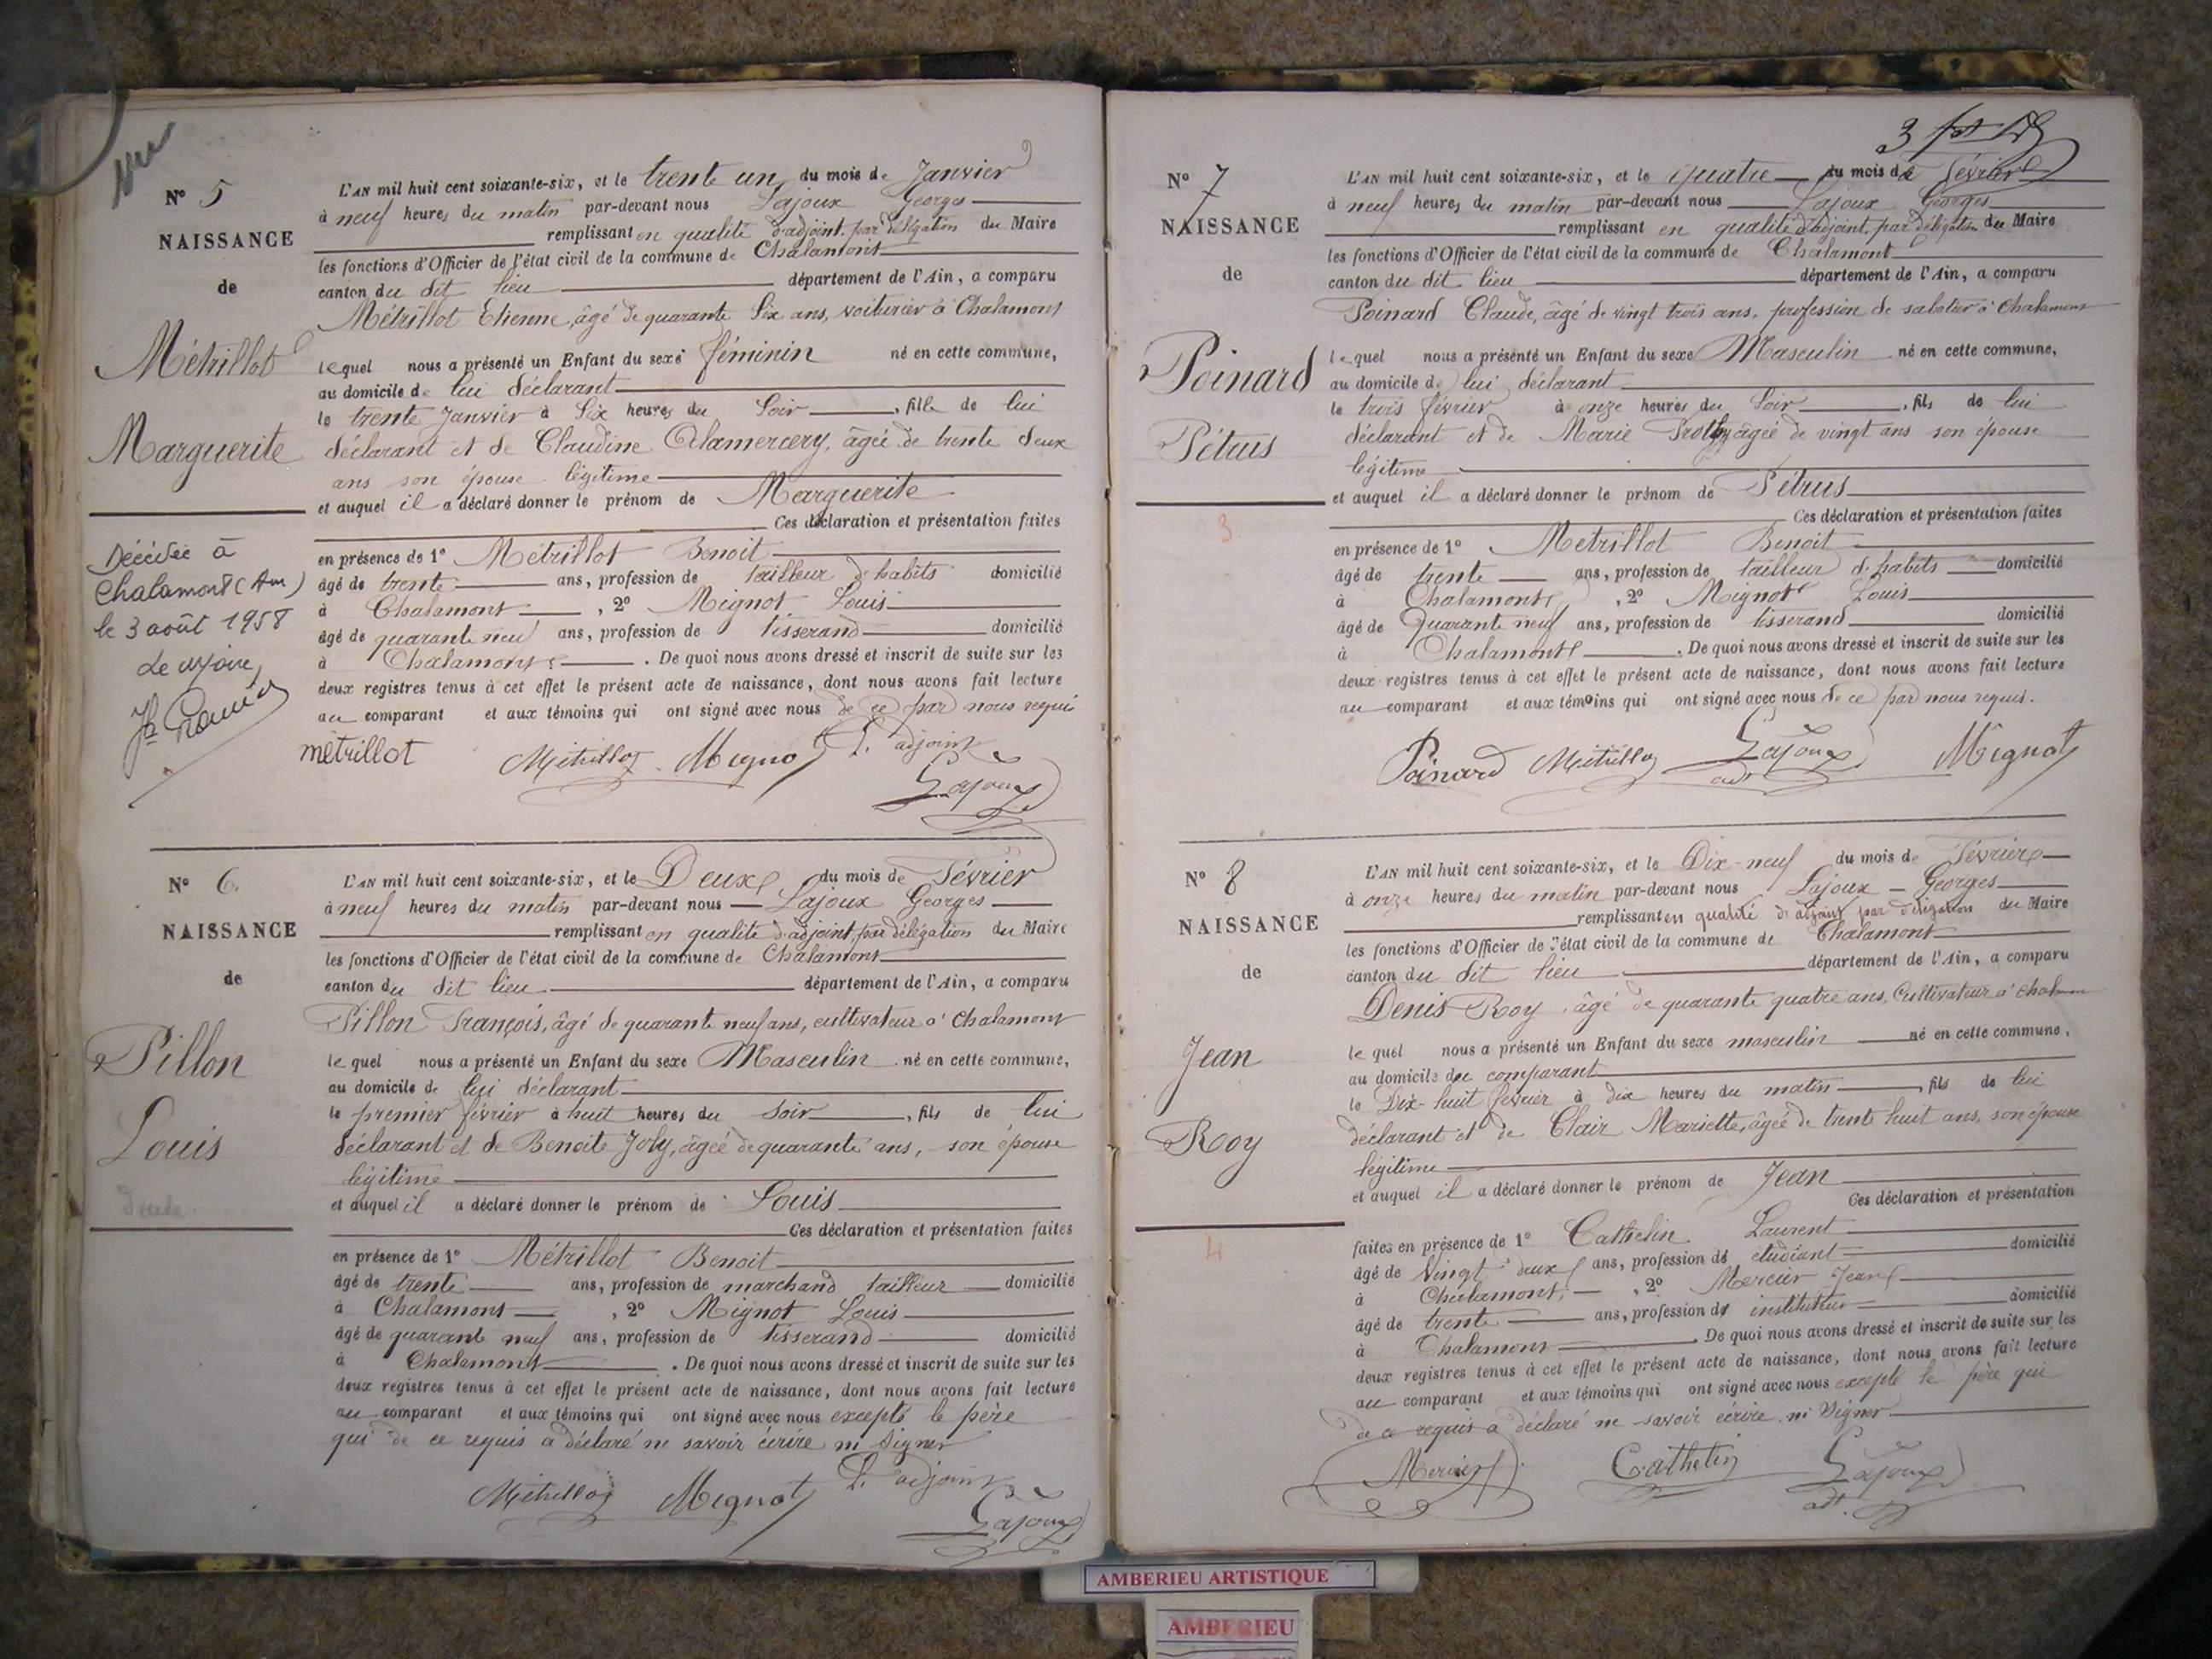 Nº 5
NAISSANCE
de
Métrillot
Marguerite
Décédée à
Chalamont (Ain)
le 3 août 1958
Le Maire,
L'AN mil huit cent soixante-six, et le trente un du mois de Janvier
à neuf heures du matin par-devant nous Lajoux Georges
remplissant en qualité d'adjoint par délégation du Maire
les fonctions d'Officier de l'état civil de la commune de Chalamont
canton du dit lieu département de l'Ain, a comparu
Métrillot Etienne, âgé de quarante six ans, voiturier à Chalamont
lequel nous a présenté un Enfant du sexe féminin né en cette commune,
au domicile de lui déclarant
le trente Janvier à six heures du soir, fille de lui
déclarant et de Claudine Alamercery, âgée de trente deux
ans son épouse légitime
et auquel il a déclaré donner le prénom de Marguerite
Ces déclaration et présentation faites
en présence de 1º Métrillot Benoit
âgé de trente ans, profession de tailleur d'habits domicilié
à Chalamont, 2º Mignot Louis
âgé de quarante neuf ans, profession de tisserand domicilié
à Chalamont. De quoi nous avons dressé et inscrit de suite sur les
deux registres tenus à cet effet le présent acte de naissance, dont nous avons fait lecture
au comparant et aux témoins qui ont signé avec nous de ce par nous requis
métrillot Métrillot Mignot L'adjoint
Lajoux
Nº 6.
NAISSANCE
de
Pillon
Louis
L'AN mil huit cent soixante-six, et le Deux du mois de Février
à neuf heures du matin par-devant nous Lajoux Georges
remplissant en qualité d'adjoint par délégation du Maire
les fonctions d'Officier de l'état civil de la commune de Chalamont
canton du dit lieu département de l'Ain, a comparu
Pillon François, âgé de quarante neuf ans, cultivateur à Chalamont
lequel nous a présenté un Enfant du sexe Masculin né en cette commune,
au domicile de lui déclarant
le premier février à huit heures du soir, fils de lui
déclarant et de Benoite Joly, âgée de quarante ans, son épouse
légitime
et auquel il a déclaré donner le prénom de Louis
Ces déclaration et présentation faites
en présence de 1º Métrillot Benoit
âgé de trente ans, profession de marchand tailleur domicilié
à Chalamont, 2º Mignot Louis
âgé de quarante neuf ans, profession de tisserand domicilié
à Chalamont. De quoi nous avons dressé et inscrit de suite sur les
deux registres tenus à cet effet le présent acte de naissance, dont nous avons fait lecture
au comparant et aux témoins qui ont signé avec nous excepté le père
qui de ce requis a déclaré ne savoir écrire ni signer
Métrillot Mignot L'adjoint
Lajoux
3
Nº 7
NAISSANCE
de
Poinard
Pétrus
3
L'AN mil huit cent soixante-six, et le quatre du mois de Février
à neuf heures du matin par-devant nous Lajoux Georges
remplissant en qualité d'adjoint par délégation du Maire
les fonctions d'Officier de l'état civil de la commune de Chalamont
canton du dit lieu département de l'Ain, a comparu
Poinard Claude, âgé de vingt trois ans, profession de sabotier à Chalamont
lequel nous a présenté un Enfant du sexe Masculin né en cette commune,
au domicile de lui déclarant
le trois février à onze heures du soir, fils de lui
déclarant et de Marie âgée de vingt ans son épouse
légitime
et auquel il a déclaré donner le prénom de Pétrus
Ces déclaration et présentation faites
en présence de 1º Metrillot Benoit
âgé de trente ans, profession de tailleur d'habits domicilié
à Chalamont, 2º Mignot Louis
âgé de Quarante neuf ans, profession de tisserand domicilié
à Chalamont. De quoi nous avons dressé et inscrit de suite sur les
deux registres tenus à cet effet le présent acte de naissance, dont nous avons fait lecture
au comparant et aux témoins qui ont signé avec nous de ce par nous requis.
Poinard Métrillot Lajoux Mignot
adt
Nº 8
NAISSANCE
de
Jean
Roy
4
L'AN mil huit cent soixante-six, et le Dix-neuf du mois de Février
à onze heures du matin par-devant nous Lajoux Georges
remplissant en qualité d'adjoint par délégation du Maire
les fonctions d'Officier de l'état civil de la commune de Chalamont
canton du dit lieu département de l'Ain, a comparu
Denis Roy, âgé de quarante quatre ans, Cultivateur à Chalamont
lequel nous a présenté un Enfant du sexe masculin né en cette commune,
au domicile du comparant
le Dix-huit février à dix heures du matin, fils de lui
déclarant et de Clair Mariette, âgée de trente huit ans, son épouse
légitime
et auquel il a déclaré donner le prénom de Jean
Ces déclaration et présentation
faites en présence de 1º Cathelin Laurent
âgé de Vingt deux ans, profession de étudiant domicilié
à Chalamont, 2º Mercier Jean
âgé de trente ans, profession d' instituteur domicilié
à Chalamont. De quoi nous avons dressé et inscrit de suite sur les
deux registres tenus à cet effet le présent acte de naissance, dont nous avons fait lecture
au comparant et aux témoins qui ont signé avec nous excepté le père qui
de ce requis a déclaré ne savoir écrire ni signer
Mercier Cathelin Lajoux
adt.
AMBERIEU ARTISTIQUE
AMBERIEU